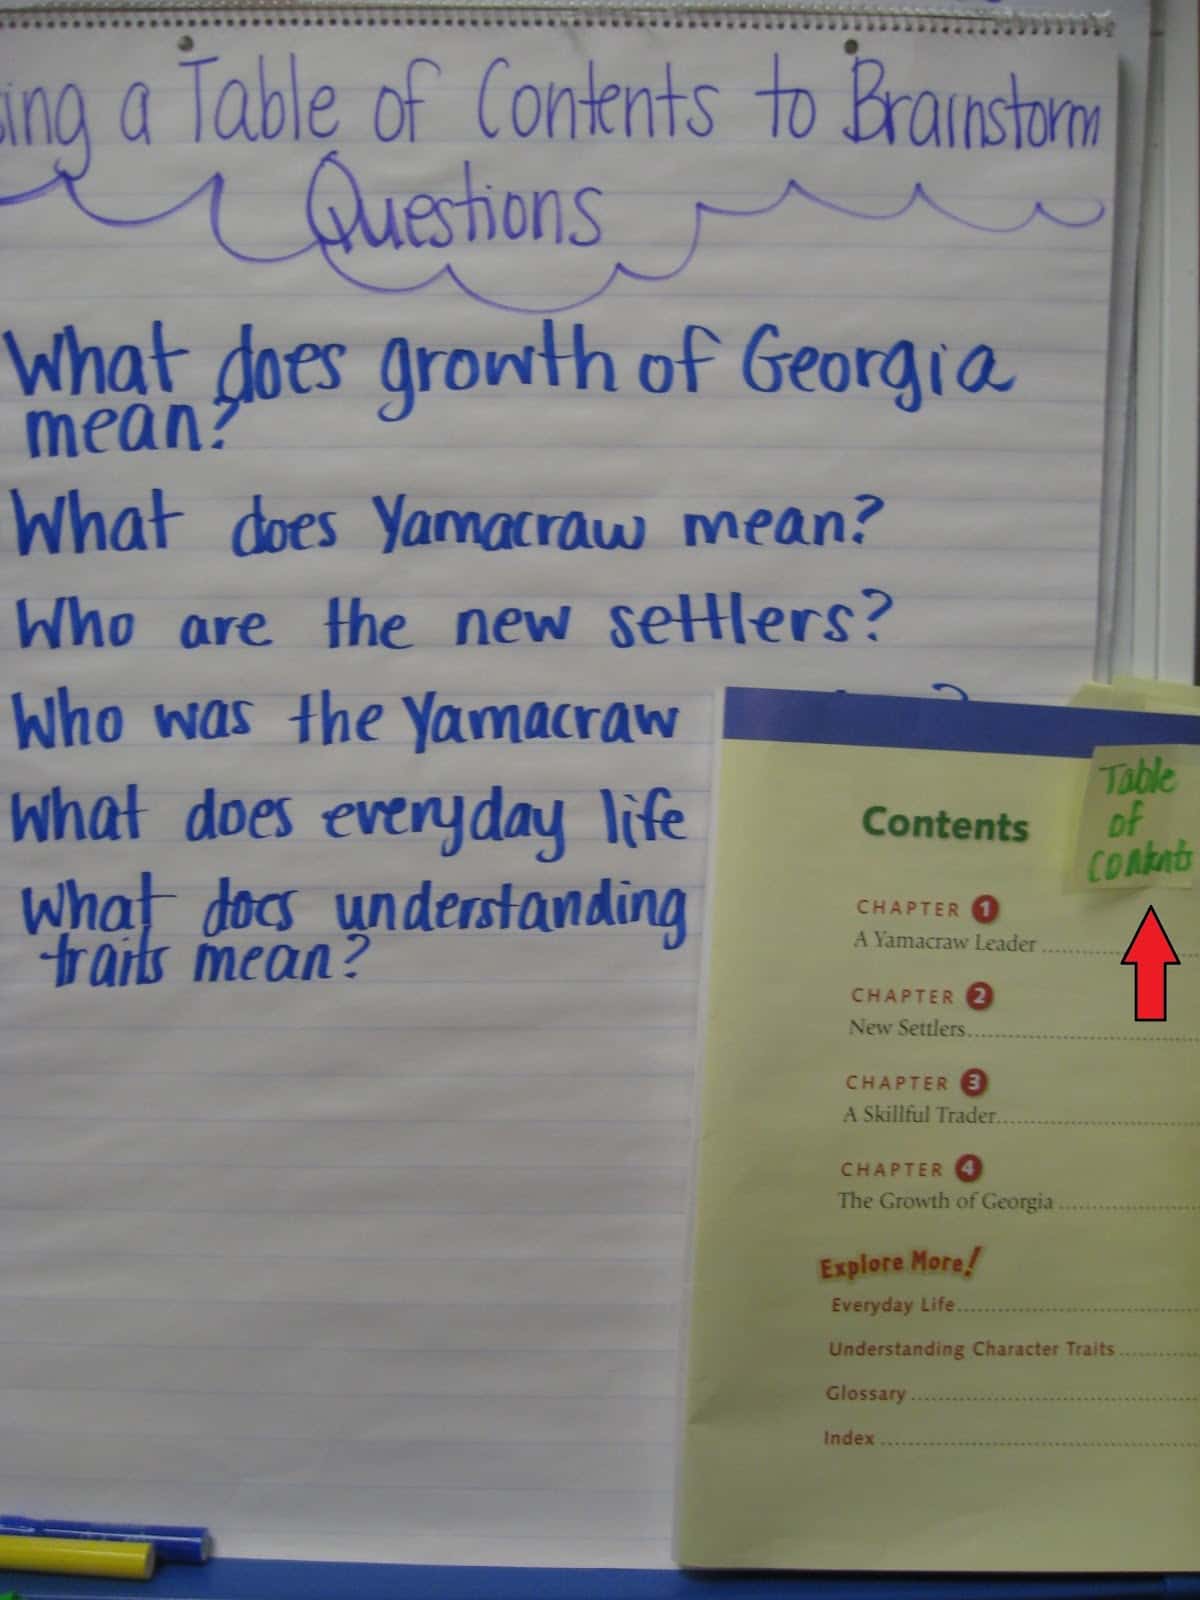 ing a Table of Contents to Brainstorm
Questions
What does growth of Georgia
mean?
What does Yamacraw mean?
Who are the new settlers?
Who was the Yamacraw
What does everyday life
What does understanding
traits mean?
Table
of
Contents
Contents
CHAPTER 1
A Yamacraw Leader
CHAPTER 2
New Settlers
CHAPTER 3
A Skillful Trader
CHAPTER 4
The Growth of Georgia
Explore More!
Everyday Life
Understanding Character Traits
Glossary
Index